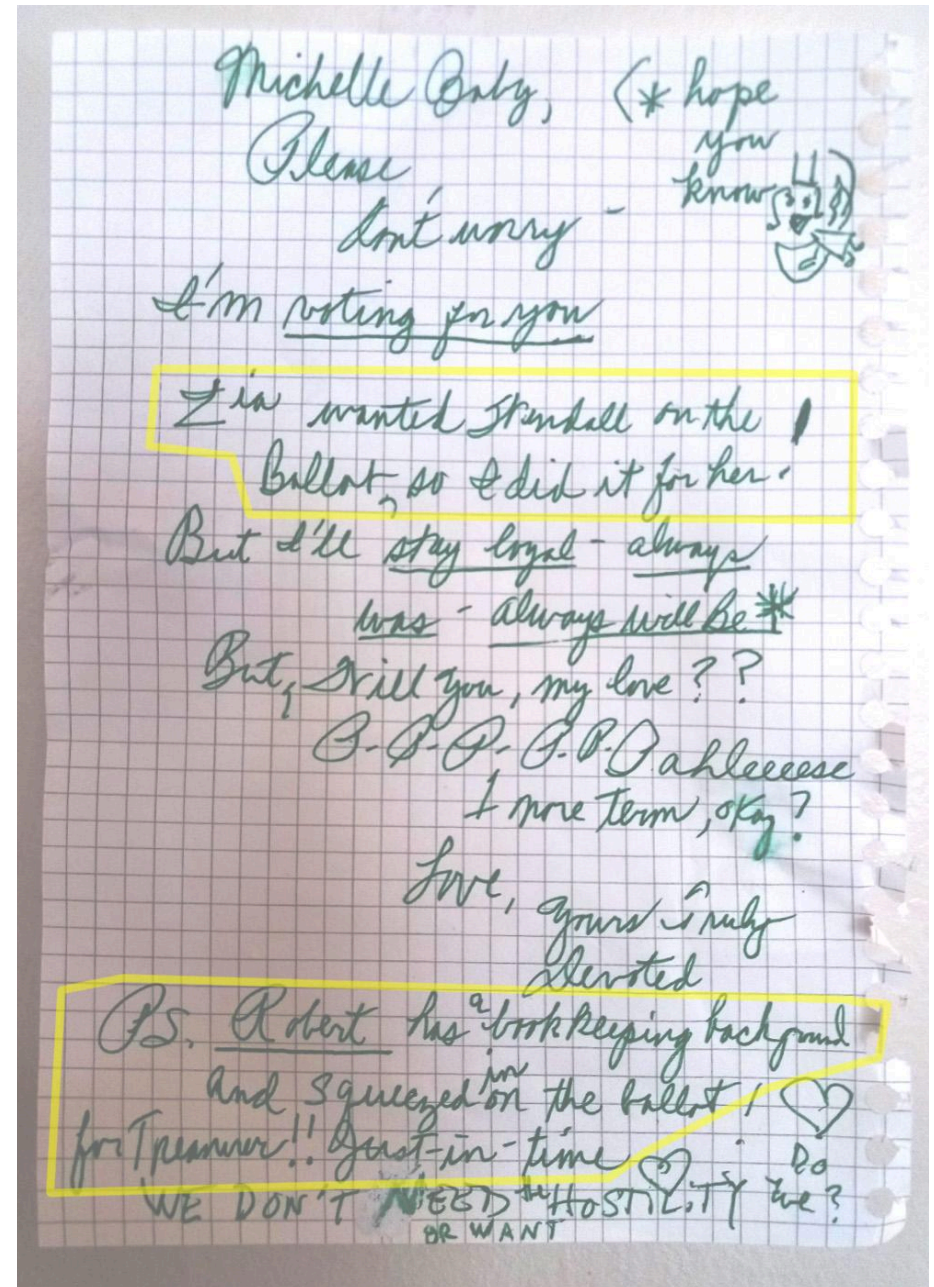 Michelle Baby, (* hope
you
know
Please
don't worry -
I'm voting for you
Zia wanted Kendall on the
Ballot, so I did it for her.
But I'll stay loyal - always
was - always will be *
But, Will you, my love??
P-P-P-P.P.Pahleeeese
1 more term, okay?
Love,
Yours Truly
Devoted
PS. Robert has a bookkeeping background
and squeezed in on the ballot!
for Treasurer!! Just-in-time
WE DON'T NEED the HOSTILITY Do we?
OR WANT